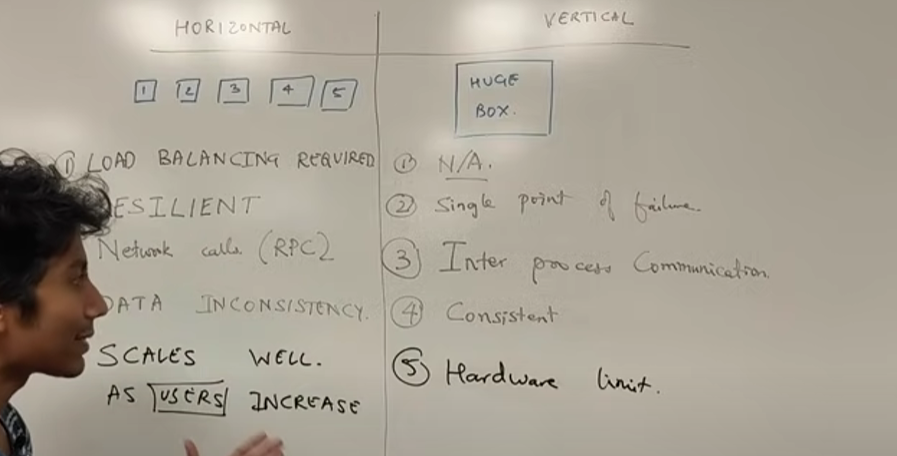 HORIZONTAL
1 2 3 4 5
① LOAD BALANCING REQUIRED
ESILIENT
Network calls (RPC)
DATA INCONSISTENCY.
SCALES WELL.
AS USERS INCREASE
VERTICAL
HUGE
BOX.
① N/A.
② Single point of failure
③ Inter process Communication
④ Consistent
⑤ Hardware limit.